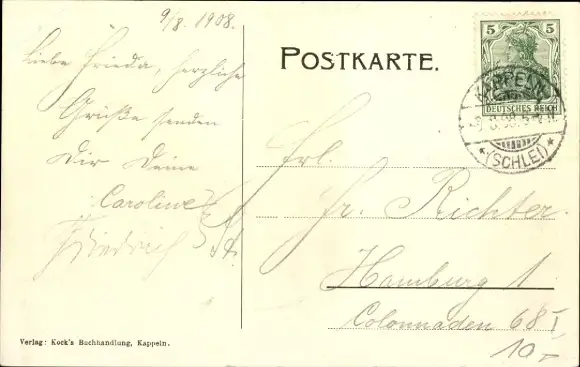 9/8. 1908.
Liebe Frieda, herzliche
Grüße senden
Dir Deine
Caroline
Friedrich
POSTKARTE.
5 5
DEUTSCHES REICH
KAPPELN
*(SCHLEI)*
Frl.
Fr. Richter.
Hamburg 1
Colonnaden 68 I
10.-
Verlag: Kock's Buchhandlung, Kappeln.